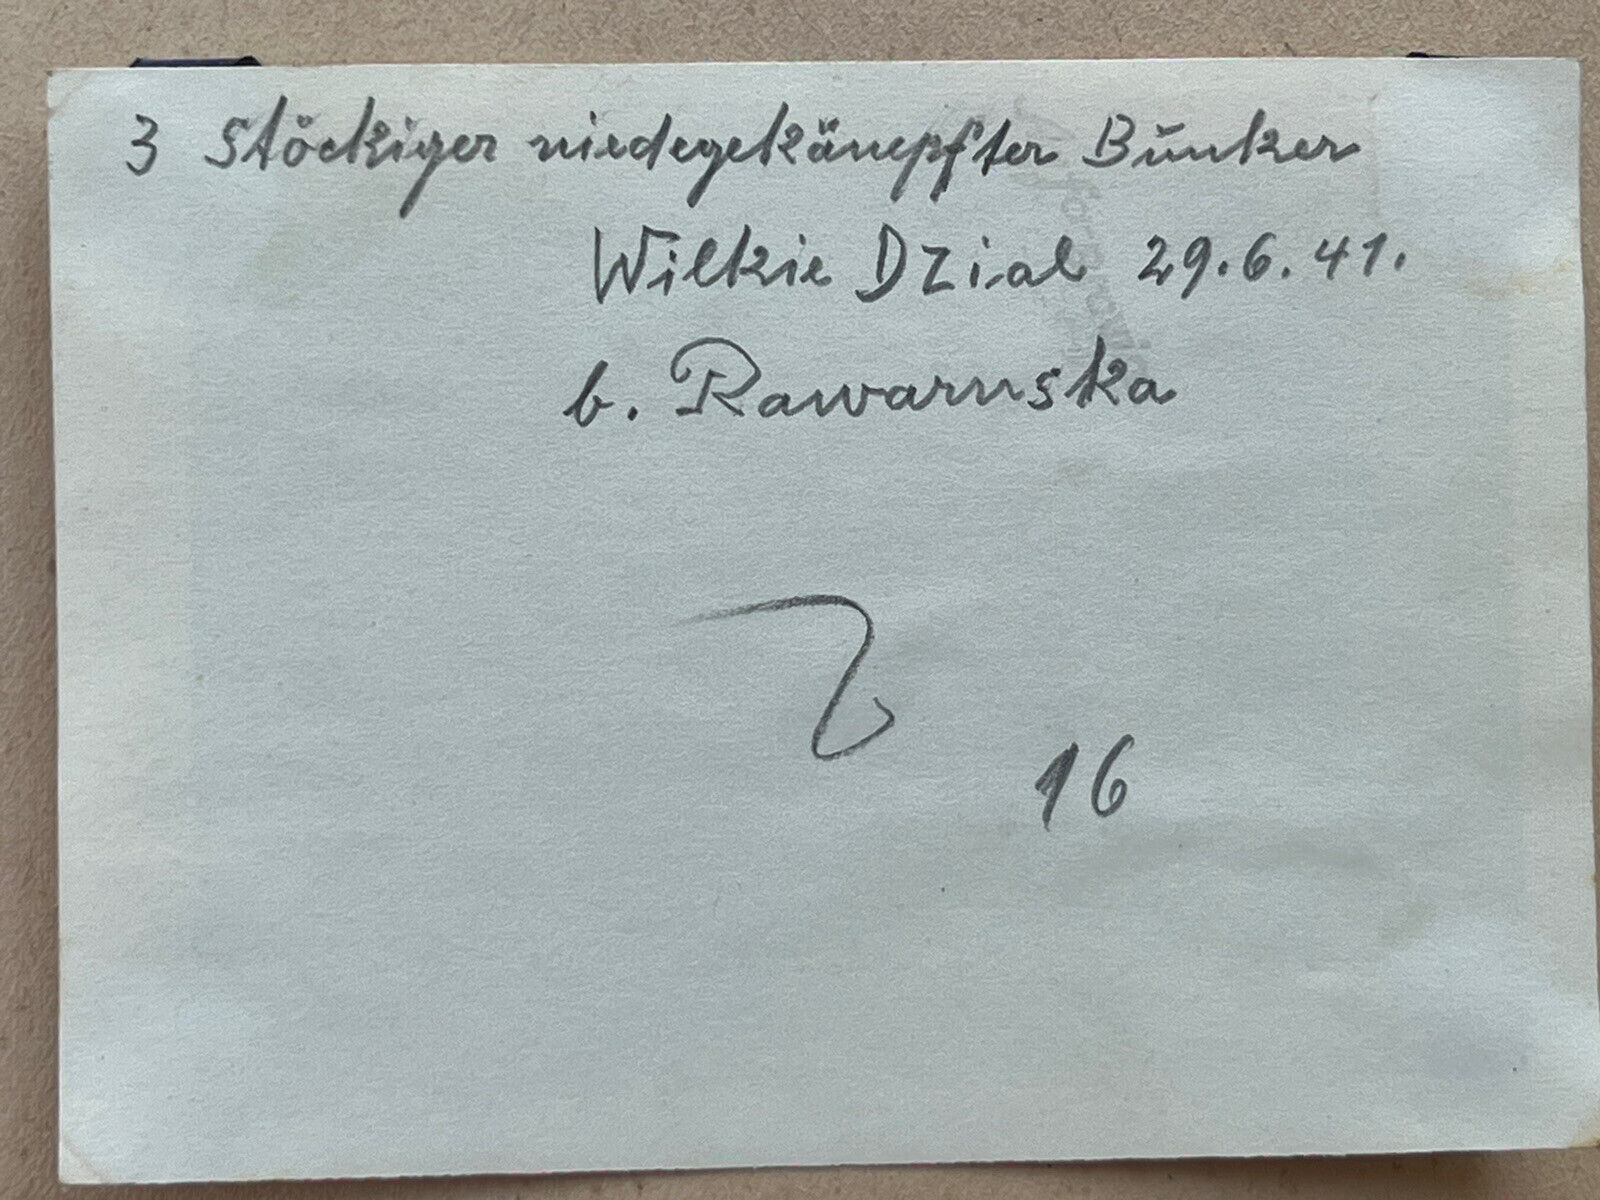 3 Stöckiger niedegekämpfter Bŭnker
Wilkie DZial 29.6.41.
b. Rawaruska
16